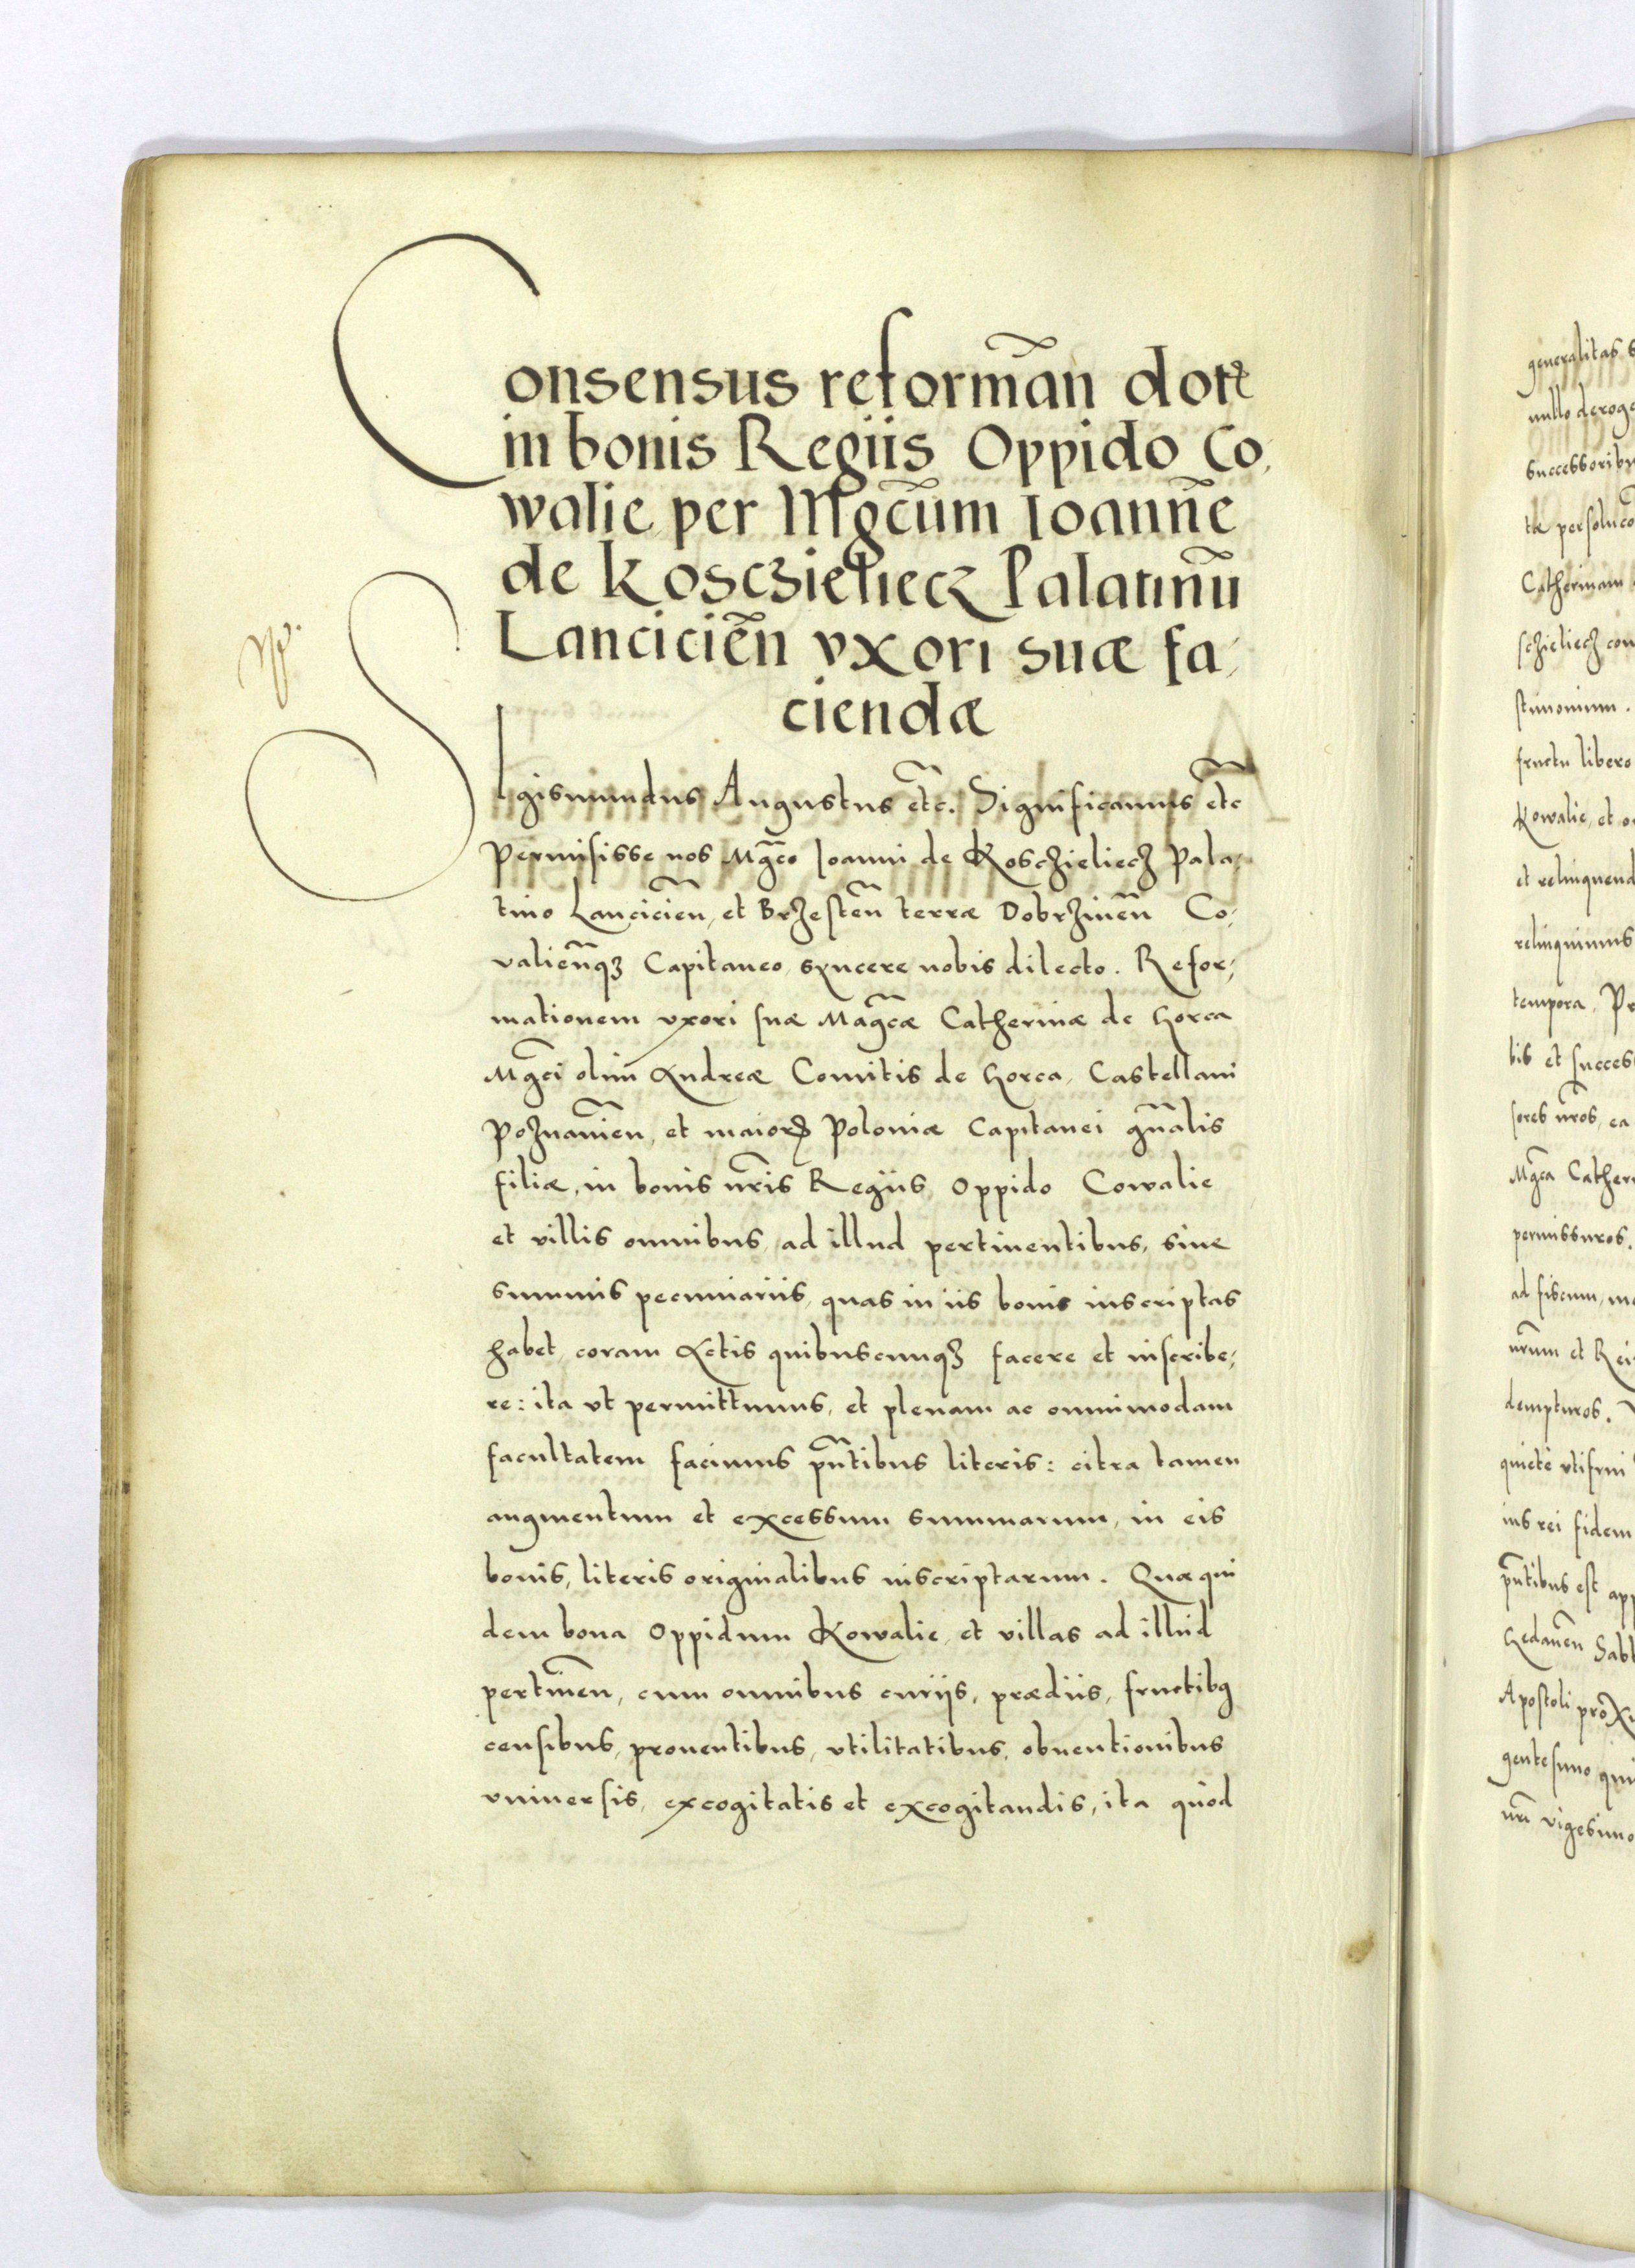 Consensus reformān dotē
in bonis Regiis Oppido Co,
walie per Mgcūm Ioannē
de Kosczieliecz Palatinū
Lanciciēn vxori suæ fa,
ciendæ
Sigismundus Augustus etc̄. Significamus etc̄
Permisisse nos Mgc̄o Ioanni de Kosczieliecz Pala,
tino Lanciciēn, et Brzestēn terræ Dobrzinēn Co,
valienq̄ȝ Capitaneo, syncere nobis dilecto. Refor,
mationem vxori suæ Magc̄æ Catherinæ de Gorca
Mgc̄i olim Andreæ Comitis de Gorca, Castellani
Poznaniēn, et maiorꝝ Poloniæ Capitanei gn̄alis
filiæ, in bonis nr̄is Regiis Oppido Cowalie
et villis omnibus, ad illud pertinentibus, siue
summis pecuniariis, quas in iis bonis inscriptas
habet, coram Actis quibuscunqȝ facere et inscribe,
re: ita vt permittimus, et plenam ac omnimodam
facultatem facimus pn̄tibus literis: citra tamen
augmentum et excessum summarum, in eis
bonis, literis originalibus inscriptarum. Quæ qui
dem bona Oppidum Kowalie, et villas ad illud
pertinēn, cum omnibus curiis, prædiis, fructibꝰ
censibus, prouentibus, vtilitatibus, obuentionibus
vniuersis, excogitatis et excogitandis, ita quòd
generalitas
nullo deroge
successoribu
tæ persolucō
Catherinam
sczieliecz con
stimonium.
fructu libero
Kowalie, et o
et relinquend
relinquimus
tempora. Pr
bis et succes
sores nr̄os, ea
Mgc̄a Cather
permissuros.
ad fiscum, m
nr̄um et Rei
dempturos.
quietè vtifrui
ius rei fidem
pn̄tibus est app
Gedanēn Sabb
Apostoli prox
gentesimo, qui
nr̄i vigesimo